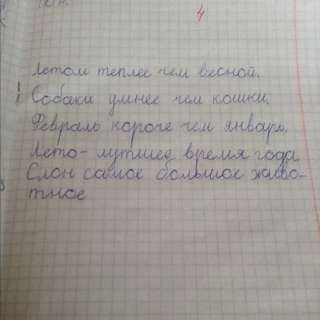 4
Летом теплее чем весной.
Собаки умнее чем кошки.
Февраль короче чем январь.
Лето - лутшее время года
Слон самое большое живо-
тное